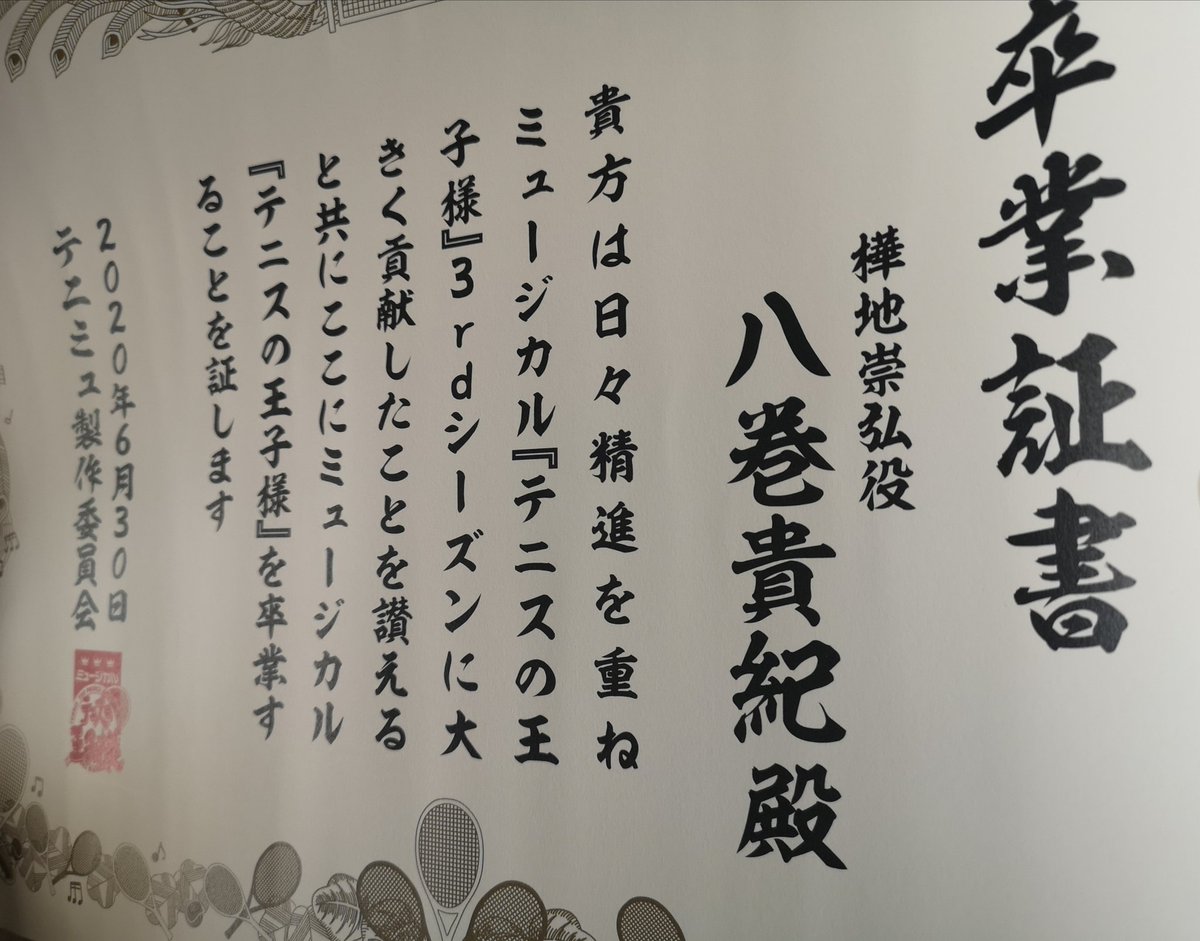 卒業証書
樺地崇弘役
八巻貴紀殿
貴方は日々精進を重ね
ミュージカル『テニスの王
子様』3rdシーズンに大
きく貢献したことを讃える
と共にここにミュージカル
『テニスの王子様』を卒業す
ることを証します
2020年6月30日
テニミュ製作委員会
ミュージカル